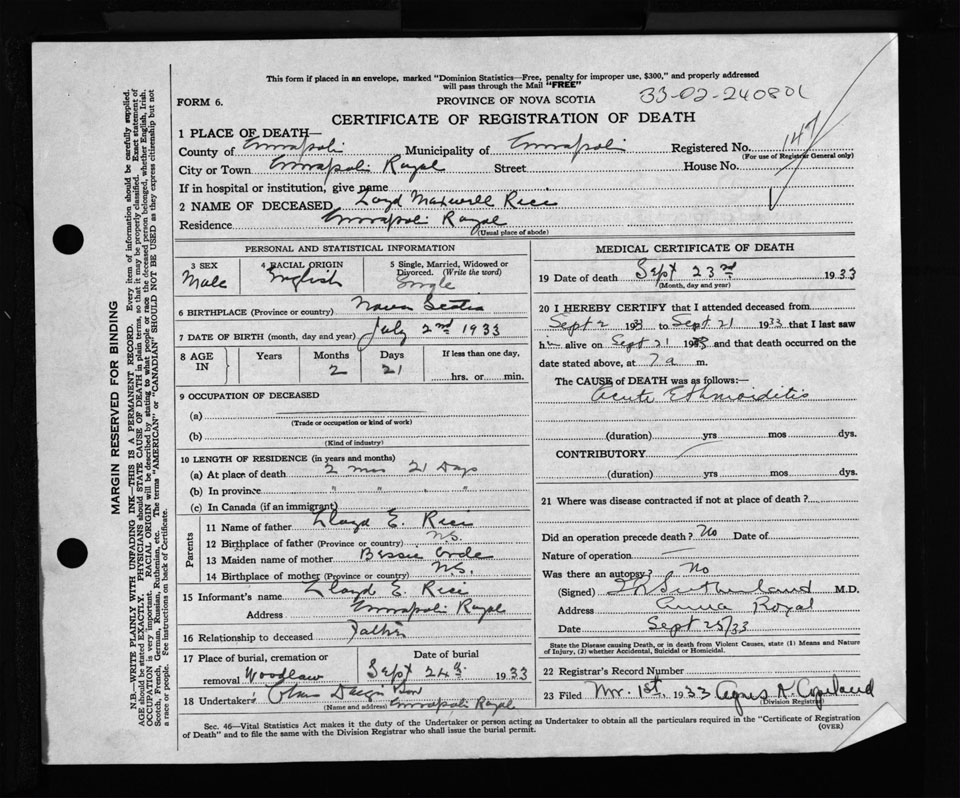 This form if placed in an envelope, marked "Dominion Statistics—Free, penalty for improper use, $300," and properly addressed
will pass through the Mail "FREE"
FORM 6.
PROVINCE OF NOVA SCOTIA
33-02-240801
CERTIFICATE OF REGISTRATION OF DEATH
147
1 PLACE OF DEATH—
County of Municipality of Registered No.
(For use of Registrar General only)
City or Town Royal Street House No.
If in hospital or institution, give name
2 NAME OF DECEASED Loyd Maxwell Rice
Residence Royal
(Usual place of abode)
PERSONAL AND STATISTICAL INFORMATION
3 SEX 4 RACIAL ORIGIN 5 Single, Married, Widowed or
Divorced. (Write the word)
Male English Single
6 BIRTHPLACE (Province or country) Nova Scotia
7 DATE OF BIRTH (month, day and year) July 2nd 1933
8 AGE IN Years Months Days If less than one day,
2 21 hrs. or min.
9 OCCUPATION OF DECEASED
(a)
(Trade or occupation or kind of work)
(b)
(Kind of industry)
10 LENGTH OF RESIDENCE (in years and months)
(a) At place of death 2 mos 21 Days
(b) In province " " " "
(c) In Canada (if an immigrant)
Parents
11 Name of father Lloyd E. Rice
12 Birthplace of father (Province or country) N.S.
13 Maiden name of mother Bessie
14 Birthplace of mother (Province or country) N.S.
15 Informant's name Lloyd E. Rice
Address Royal
16 Relationship to deceased Father
17 Place of burial, cremation or Date of burial
removal Woodlawn Sept 24th 1933
18 Undertaker's
(Name and address) Royal
MEDICAL CERTIFICATE OF DEATH
19 Date of death Sept 23rd 1933
(Month, day and year)
20 I HEREBY CERTIFY that I attended deceased from
Sept 2 1933 to Sept 21 1933 that I last saw
him alive on Sept 21 1933 and that death occurred on the
date stated above, at 7 a m.
The CAUSE of DEATH was as follows:—
Acute Ethmoiditis
(duration) yrs mos dys.
CONTRIBUTORY
(duration) yrs mos dys.
21 Where was disease contracted if not at place of death?
Did an operation precede death? No Date of
Nature of operation —
Was there an autopsy? No
(Signed) Sutherland M.D.
Address Anna Royal
Date Sept 25/33
State the Disease causing Death, or in death from Violent Causes, state (1) Means and Nature
of Injury, (2) whether Accidental, Suicidal or Homicidal.
22 Registrar's Record Number
23 Filed 1st, 1933 Agnes N. Copeland
(Division Registrar)
Sec. 46—Vital Statistics Act makes it the duty of the Undertaker or person acting as Undertaker to obtain all the particulars required in the "Certificate of Registration
of Death" and to file the same with the Division Registrar who shall issue the burial permit.
(OVER)
MARGIN RESERVED FOR BINDING
N.B.—WRITE PLAINLY WITH UNFADING INK—THIS IS A PERMANENT RECORD. Every item of information should be carefully supplied.
AGE should be stated EXACTLY. PHYSICIANS should STATE CAUSE OF DEATH in plain terms, so that it may be properly classified. Exact statement of
OCCUPATION is very important. RACIAL ORIGIN will be described by stating to what people or race the deceased person belonged, whether English, Irish,
Scotch, French, German, Russian, Ruthenian, etc. The terms "AMERICAN" or "CANADIAN" SHOULD NOT BE USED as they express citizenship but not
a race or people. See instructions on back of Certificate.